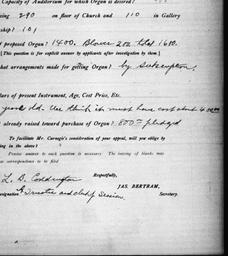 Capacity of Auditorium for which Organ is desired?
290 on floor of Church and 110 in Gallery
ship? 101
proposed Organ? 1400. Blower 200 total 1600.
[This question is for explicit answer by applicants after investigation by them.]
hat arrangements made for getting Organ? by Subscription
lars of present Instrument, Age, Cost Price, Etc.
years old. We think it must have cost about
already raised toward purchase of Organ? 800 pledged
To facilitate Mr. Carnegie's consideration of your appeal, will you oblige by
ing in the above?
Precise answer to each question is necessary. The issuing of blanks may
correspondence to be filed
Respectfully,
L. B. Coddington
JAS. BERTRAM,
esignation Trustee and clerk of Session
Secretary.